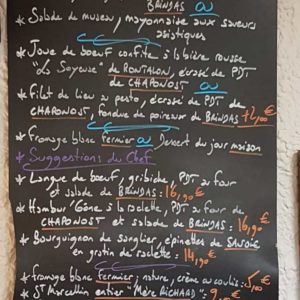 BRINDAS ou
* Salade de museau, mayonnaise aux saveurs
asiatiques
* Joue de boeuf confite à la bière rousse
"La Soyeuse" de RONTALON, écrasé de PDT
de CHAPONOST ou
* Filet de lieu au pesto, écrasé de PDT de
CHAPONOST, fondue de poireaux de BRINDAS +2,00€
* fromage blanc fermier ou Dessert du jour maison
* Suggestions du Chef
* Langue de boeuf, gribiche, PDT au four
et salade de BRINDAS: 16,90€
* Hambur'Gône à la raclette, PDT au four de
CHAPONOST et salade de BRINDAS: 16,90€
* Bourguignon de sanglier, épinettes de SAVOIE
en gratin de raclette: 14,90€
* fromage blanc fermier: nature, crème ou coulis: 5,00€
* St Marcellin entier "Mère RICHARD"